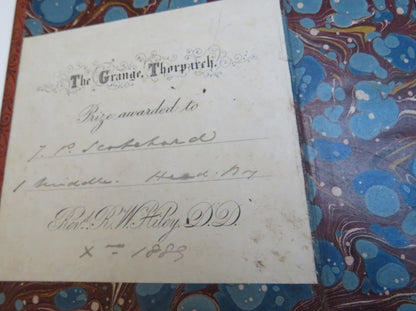 The Grange, Thorparch.
Prize awarded to
J. P.
1 Middle. Head Boy
Revd. R. W. Hiley, D.D.
Xmas 1889